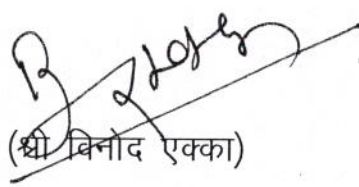 (श्री विनोद एक्का)